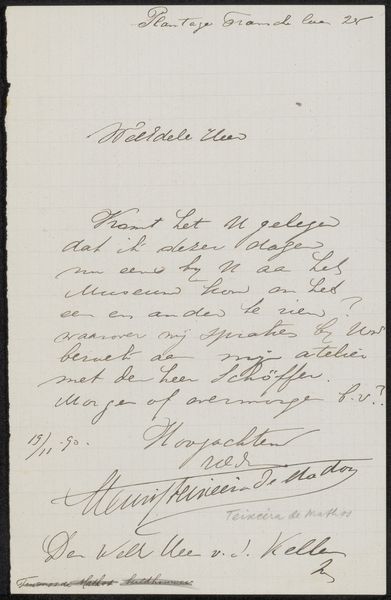 Plantage Franschelaan 25
WelEdele Heer
Komt het U gelegen
dat ik dezer dagen
nu eens bij U aan het
Museum kom om het
een en ander te zien?
waarover wij spraken bij Uw
bezoek aan mijn atelier
met den heer Schöffer.
Morgen of overmorgen b.v.?
19/11-90. Hoogachtend
Henri Teixeira de Mattos
Teixeira de Mattos
Den Weled Heer v. d. Kellen